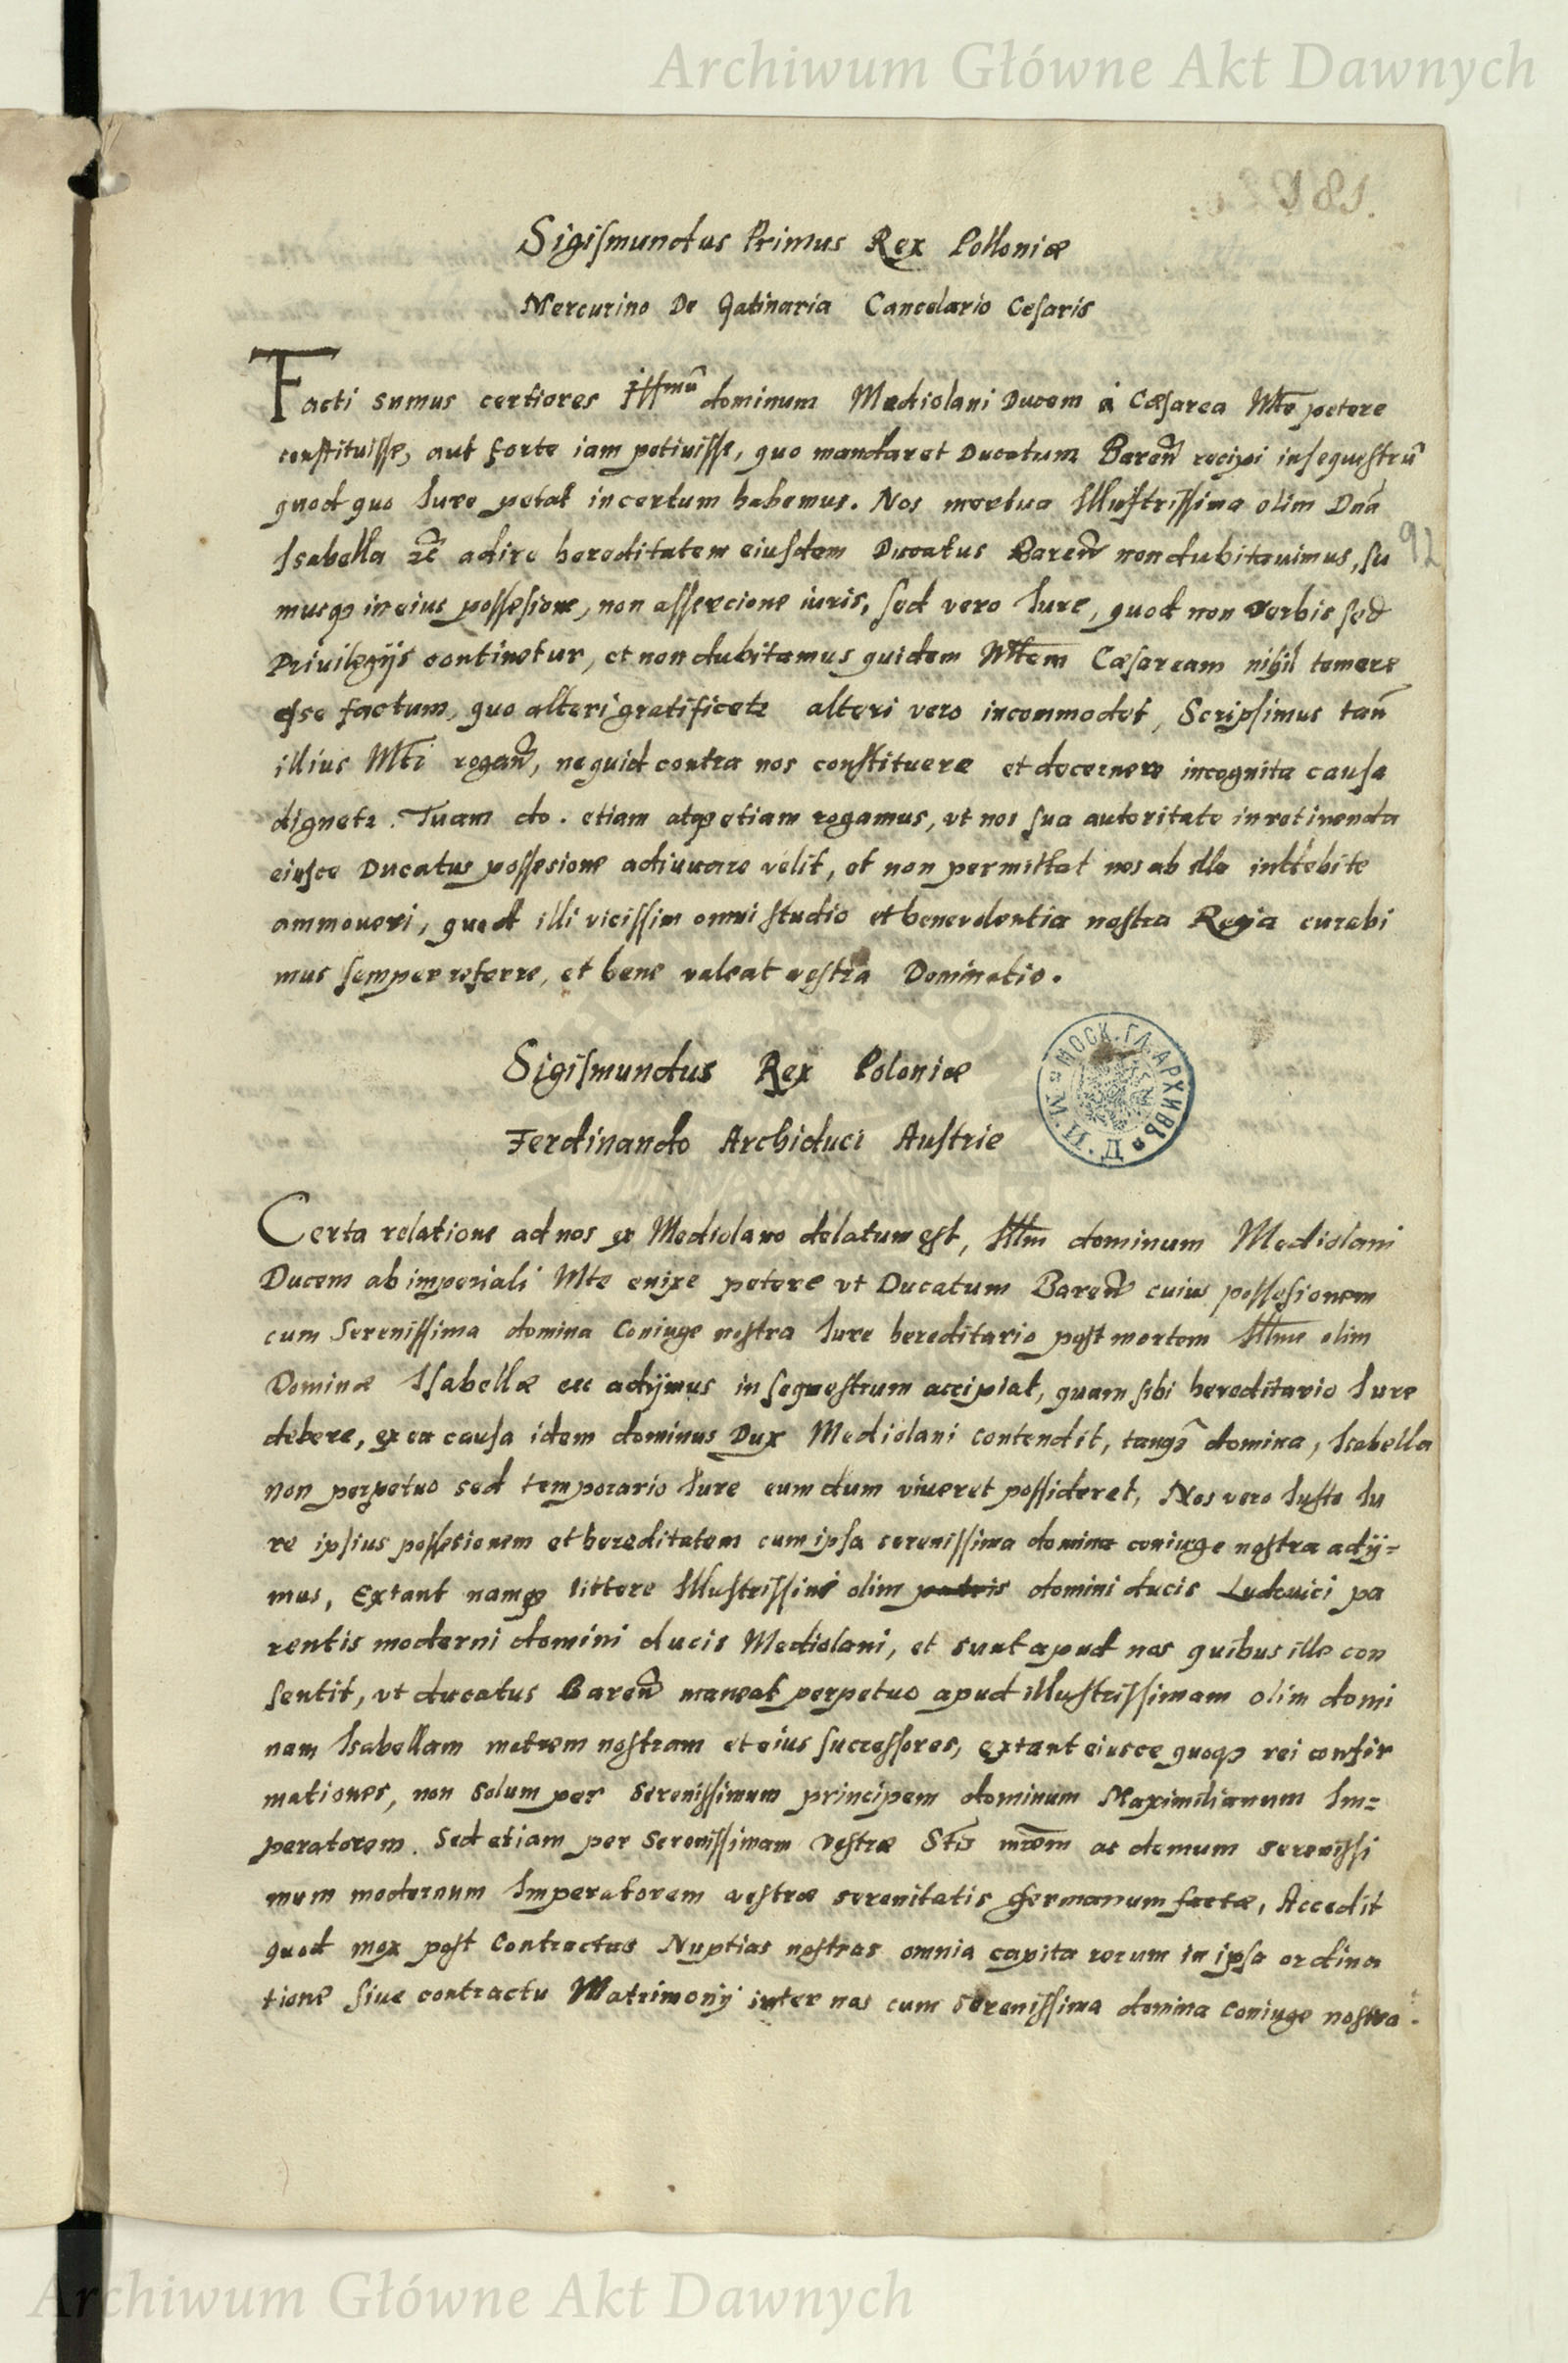 Archiwum Główne Akt Dawnych
181.
Sigismundus Primus Rex Polloniæ
Mercurino De Gatinaria Cancelario Cesaris
Facti sumus certiores Illmũ dominum Mediolani Ducem à Cæsarea Mte petere
constituisse, aut forte iam petiuisse, quo mandaret Ducatum Bareñ recipi in sequestrũ
quod quo Iure petat incertum habemus. Nos mortua Illustrissima olim Dña
Isabella etc̃ adire hereditatem eiusdem Ducatus Bareñ non dubitauimus, su
92
musq in eius possesione, non assercione iuris, sed vero Iure, quod non verbis sed
Priuilegijs continetur, et non dubitamus quidem Mtem Cæsaream nihil temere
esse factum, quo alteri gratificetr alteri vero incommodet, Scripsimus tañ
illius Mti rogañ, ne quid contra nos constituere et decernere incognita causa
dignetr. Tuam do. etiam atq etiam rogamus, vt nos sua autoritate in retinenda
eiusce Ducatus possesione adiuuare velit, et non permittat nos ab illa indebite
ammoueri, quod illi vicissim omni studio et benevolentia nostra Regia curabi
mus semper referre, et bene valeat vestra Dominatio.
Sigismundus Rex Poloniæ
МОСК. ГЛ. АРХИВЪ М. И. Д.
Ferdinando Archiduci Austrie
Certa relatione ad nos ex Mediolano delatum est, Illm dominum Mediolani
Ducem ab imperiali Mte enixe petere vt Ducatum Bareñ cuius possesionem
cum Serenissima domina Coniuge nostra Iure hereditario post mortem Illme olim
Dominæ Isabellæ etc adijmus in sequestrum accipiat, quam sibi hereditario Iure
debere, ex ea causa idem dominus Dux Mediolani contendit, tanq̃ domina, Isabella
non perpetuo sed temporario Iure eum dum viueret possideret, Nos vero Iusto Iu
re ipsius possesionem et hereditatem cum ipsa serenissima domina coniuge nostra adij=
mus, Extant namq littere Illustrissimi olim patris domini ducis Ludouici pa
rentis moderni domini ducis Mediolani, et sunt apud nos quibus ille con
sentit, vt ducatus Bareñ maneat perpetuo apud illustrissimam olim domi
nam Isabellam matrem nostram et eius successores, extant eiusce quoq rei confir
mationes, non solum per Serenissimum principem dominum Maximilianum Im=
peratorem. Sed etiam per Serenissimam Vestræ Stis mr̃em ac demum serenissi
mum modernum Imperatorem vestræ serenitatis germanum factæ, Accedit
quod mox post Contractas Nuptias nostras omnia capita rerum in ipsa ordina
tione siue contractu Matrimonij inter nos cum Serenissima domina Coniuge nostra
Archiwum Główne Akt Dawnych